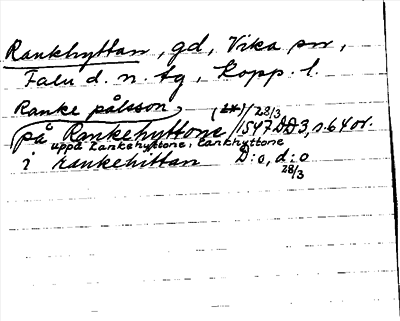 Rankhyttan, gd, Vika sn,
Falu d. n. tg, Kopp. l.
Ranke pålsson, 28/3
på Rankehyttone 1547 DD3, s. 64 or.
uppå Rankehyttone, Rankhyttone
i rankehittan D:o, d:o
28/3